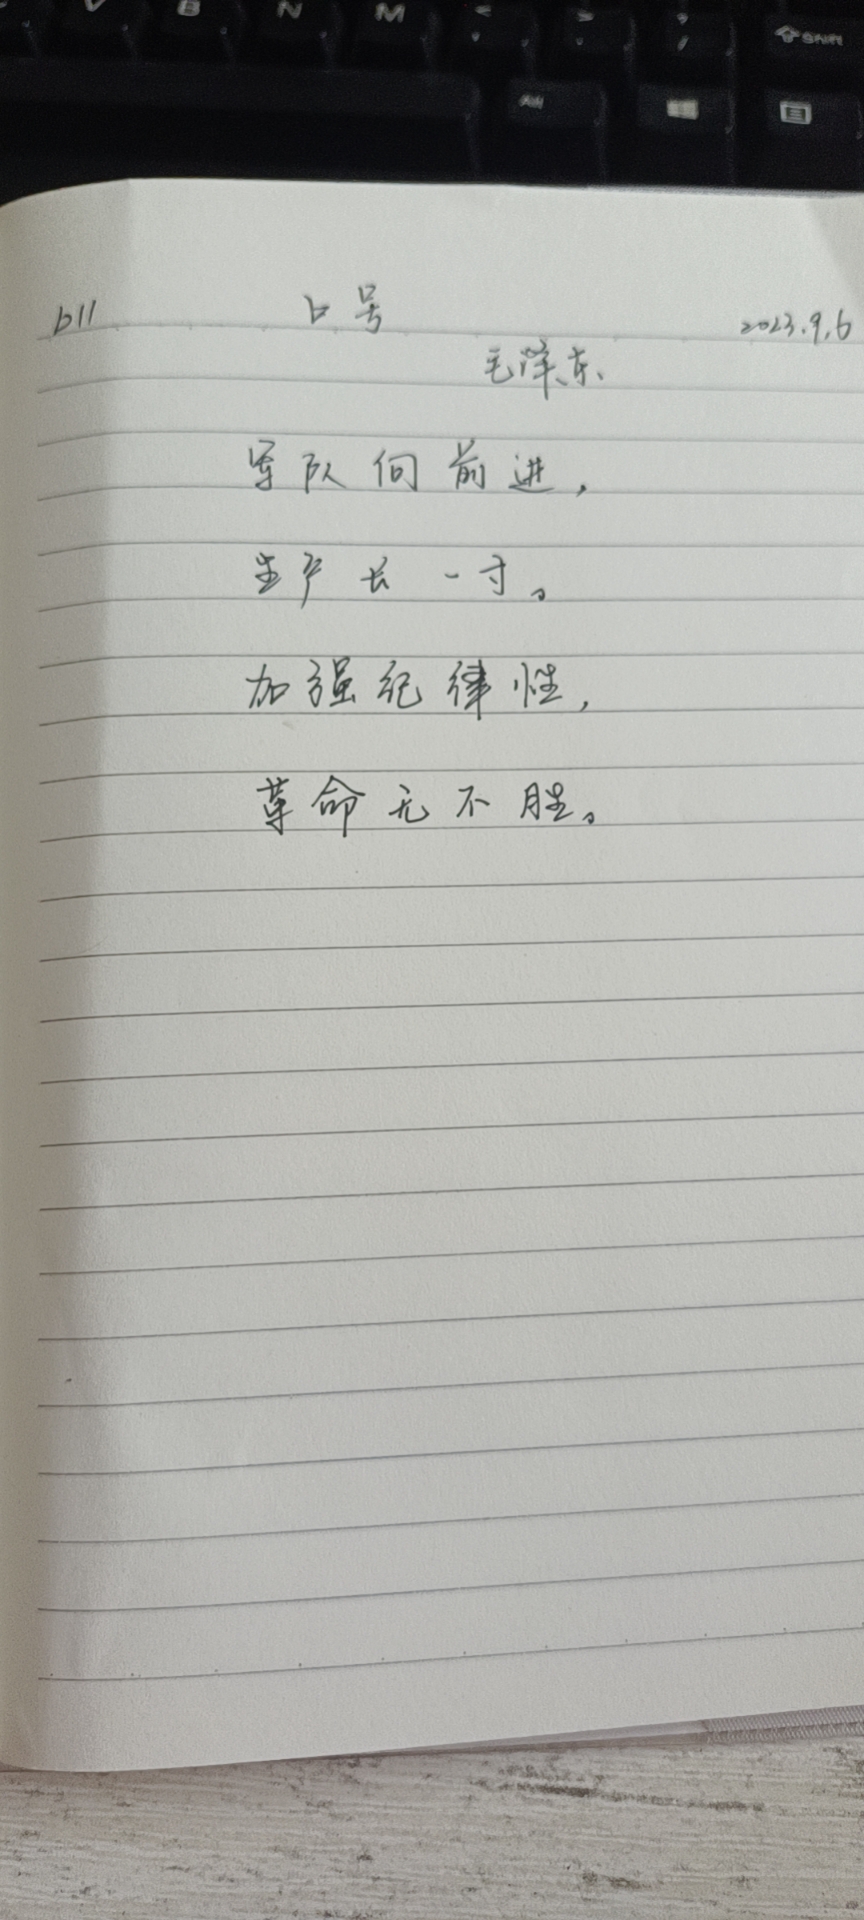 V B N M < > ? /
Shift
Alt
611 口号 2023.9.6
毛泽东
军队向前进,
生产长一寸。
加强纪律性,
革命无不胜。